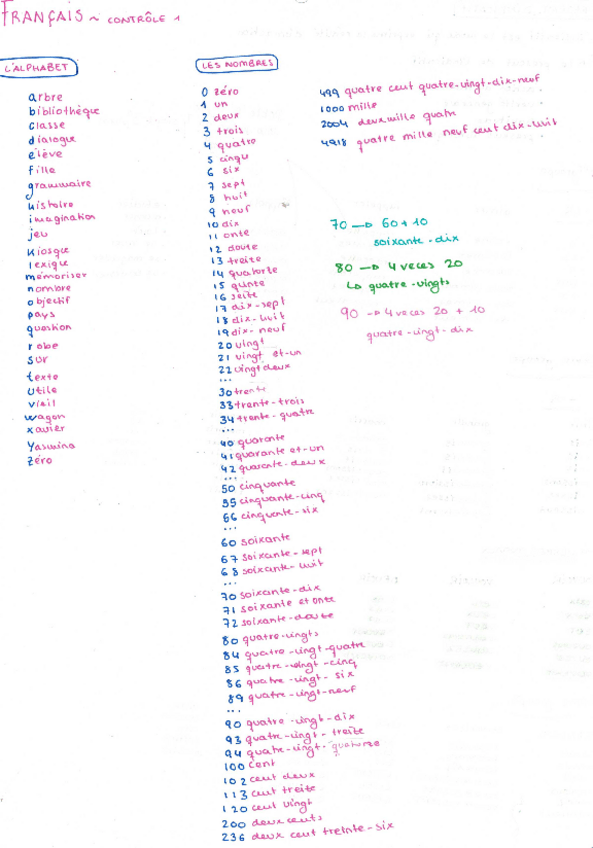 FRANÇAIS ~ CONTRÔLE 1
L'ALPHABET
arbre
bibliothèque
classe
dialogue
élève
fille
grammaire
histoire
imagination
jeu
kiosque
lexique
mémoriser
nombre
objectif
pays
question
robe
sur
texte
utile
visil
wagon
xavier
Yasmina
Zéro
LES NOMBRES
0 zéro
1 un
2 deux
3 trois
4 quatre
5 cinqu
6 six
7 sept
8 huit
9 neuf
10 dix
11 onze
12 douze
13 treize
14 quatorze
15 quinze
16 seize
17 dix-sept
18 dix-huit
19 dix-neuf
20 vingt
21 vingt et-un
22 vingt deux
...
30 trente
33 trante-trois
34 trante-quatre
...
40 quarante
41 quarante et-un
42 quarante-deux
...
50 cinquante
55 cinquante-cinq
56 cinquente-six
...
60 soixante
67 soixante-sept
68 soixante-huit
...
70 soixante-dix
71 soixante et onze
72 soixante-douze
80 quatre-vingts
84 quatre-vingt-quatre
85 quatre-vingt-cinq
86 quatre-vingt-six
89 quatre-vingt-neuf
...
90 quatre-vingt-dix
93 quatre-vingt-treize
94 quatre-vingt-quatorze
100 cent
102 cent deux
113 cent treize
120 cent vingt
200 deux cents
236 deux cent treinte-six
499 quatre cent quatre-vingt-dix-neuf
1000 mille
2004 deux mille quatre
4918 quatre mille neuf cent dix-huit
70 → 60 + 10
soixante-dix
80 → 4 veces 20
↳ quatre-vingts
90 → 4 veces 20 + 10
quatre-vingt-dix